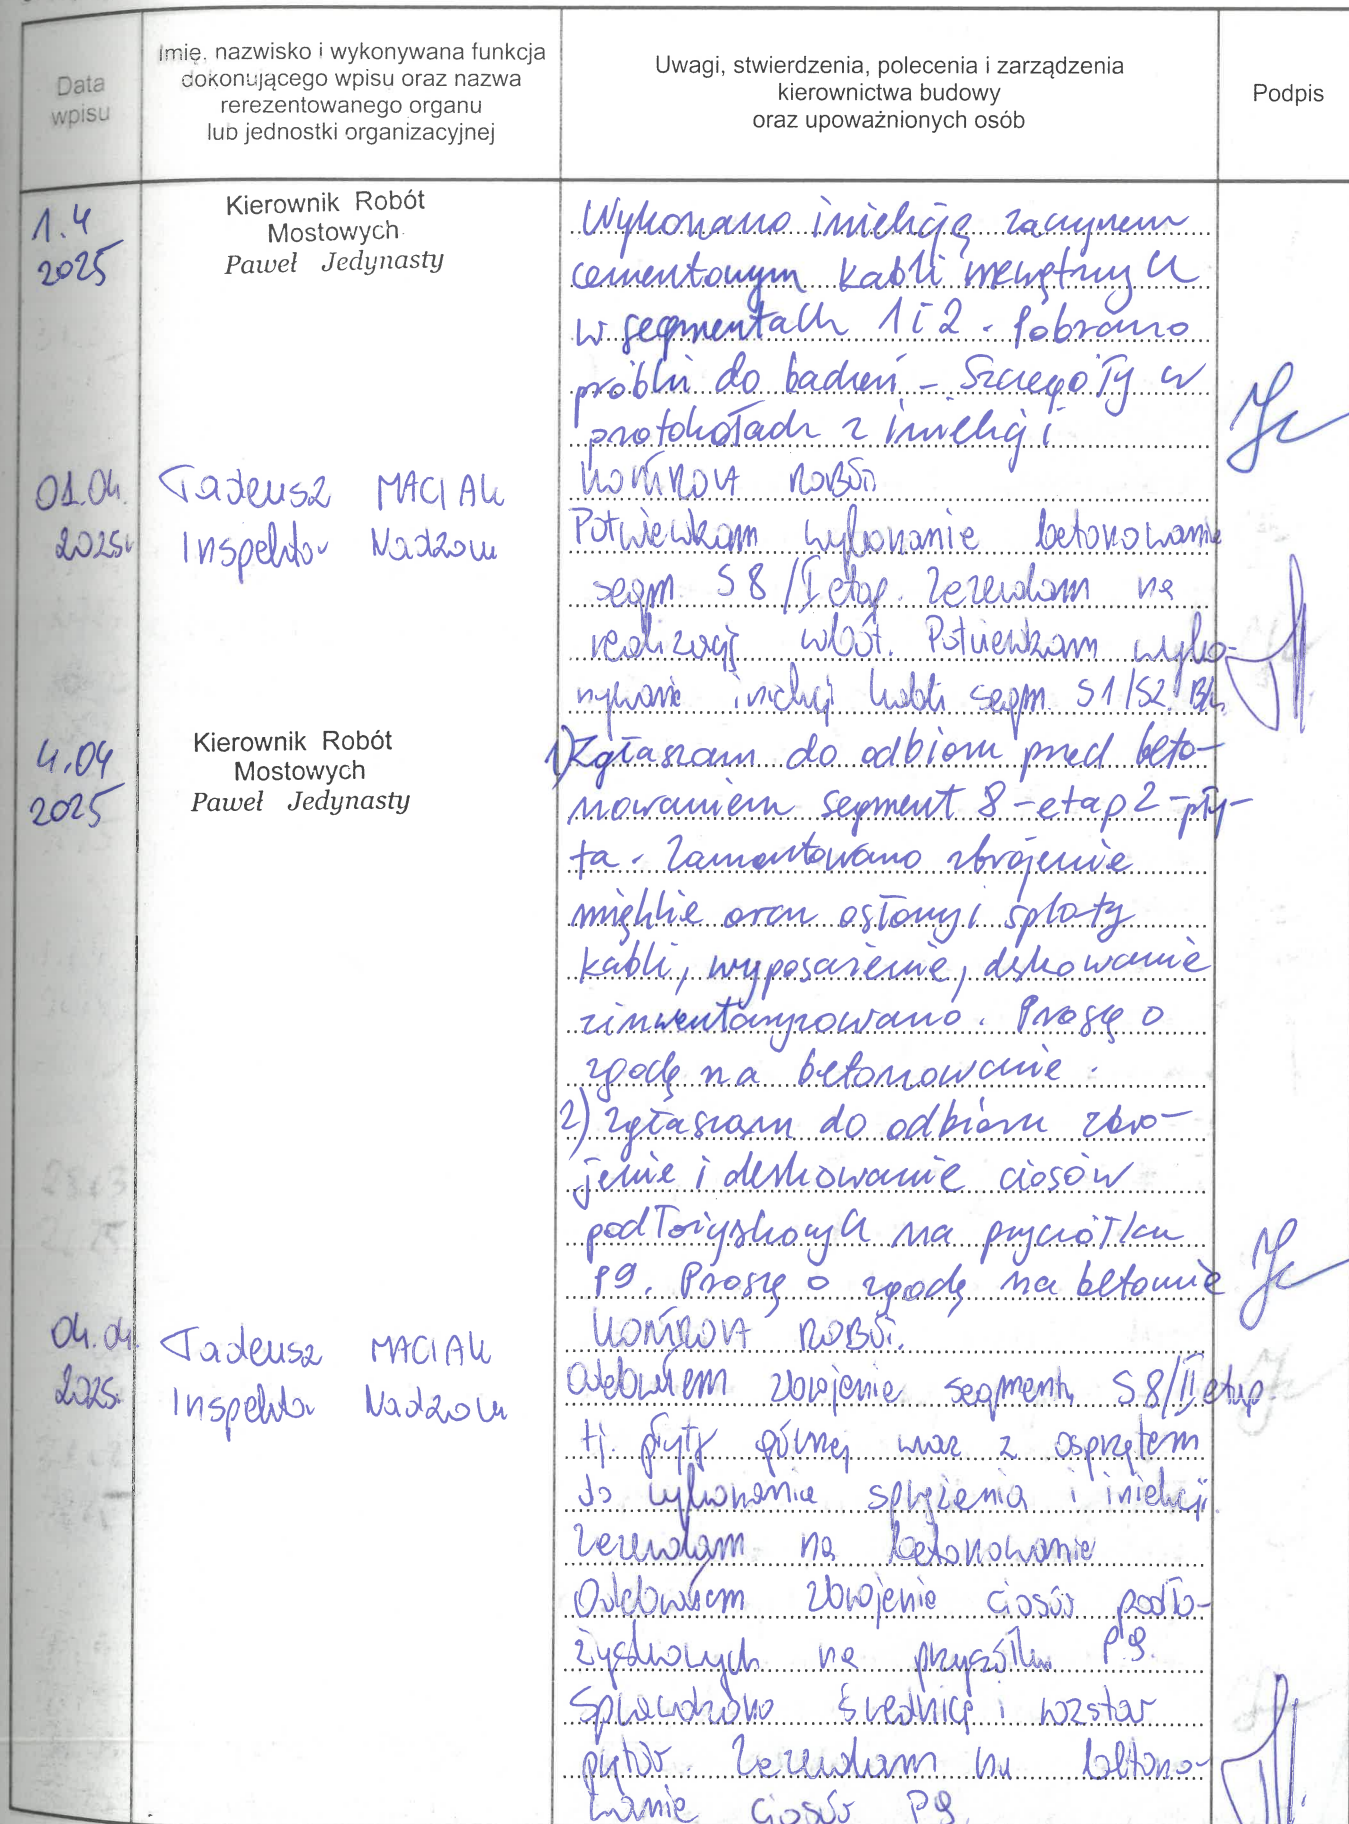 Data
wpisu
Imię, nazwisko i wykonywana funkcja
dokonującego wpisu oraz nazwa
rerezentowanego organu
lub jednostki organizacyjnej
Uwagi, stwierdzenia, polecenia i zarządzenia
kierownictwa budowy
oraz upoważnionych osób
Podpis
1.4
2025
Kierownik Robót
Mostowych
Paweł Jedynasty
Wykonano iniekcję zaczynem
cementowym kabli wewętrznych
w segmentach 1 i 2 . Pobrano
próbki do badań - Szczegóły w
protokołach z iniekcji
01.04.
2025r
Tadeusz MACIAK
Inspektor Nadzoru
KONTROLA ROBÓT
Potwierdzam wykonanie betonowanie
segm S8/I etap. Zezwalam na
realizację robót. Potwierdzam wyko-
nywanie iniekcji kabli segm. S1/S2.
4.04
2025
Kierownik Robót
Mostowych
Paweł Jedynasty
1) Zgłaszam do odbioru przed beto-
nowaniem segment 8 - etap 2 - pły-
ta . Zamontowano zbrojenie
miękkie oraz osłony i sploty
kabli, wyposażenie, deskowanie
zinwentaryzowano. Proszę o
zgodę na betonowanie .
2) Zgłaszam do odbioru zbro-
jenie i deskowanie ciosów
podłożyskowych na przyczółku
P9. Proszę o zgodę na betownie
04.04.
2025.
Tadeusz MACIAK
Inspektor Nadzoru
KONTROLA ROBÓT.
Odebrałem zbrojenie segmentu S8/II etap
tj. płyty górnej wraz z osprzętem
do wykonania sprężenia i iniekcji.
Zezwalam na betonowanie
Odebrałem zbrojenie ciosów podło-
żyskowych na przyczółku P.9.
Sprawdzono średnicę i rozstaw
prętów. Zezwalam na betono-
wanie ciosów P9.